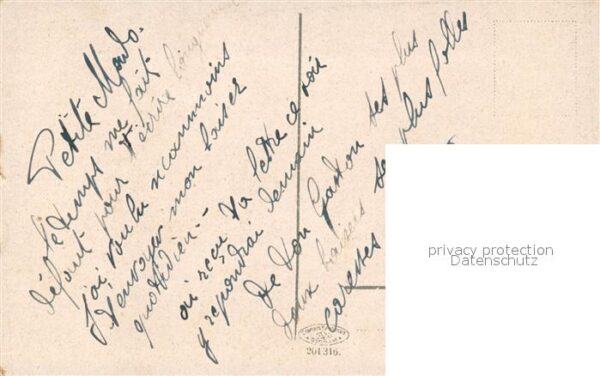 Petite Mado.
le temps me fait
défaut pour t'écrire longuement
j'ai voulu néanmoins
t'envoyer mon baiser
quotidien --
ai reçu ta lettre ce soir
y répondrai demain
De ton Gaston ses plus
doux baisers ses plus folles
caresses
privacy protection
Datenschutz
201316.